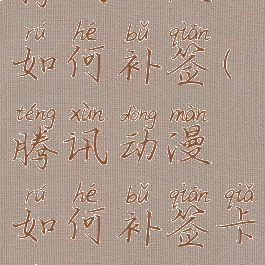 rú hé bǔ qiān
如何补签(
téng xùn dòng màn
腾讯动漫
rú hé bǔ qiān qiǎ
如何补签卡